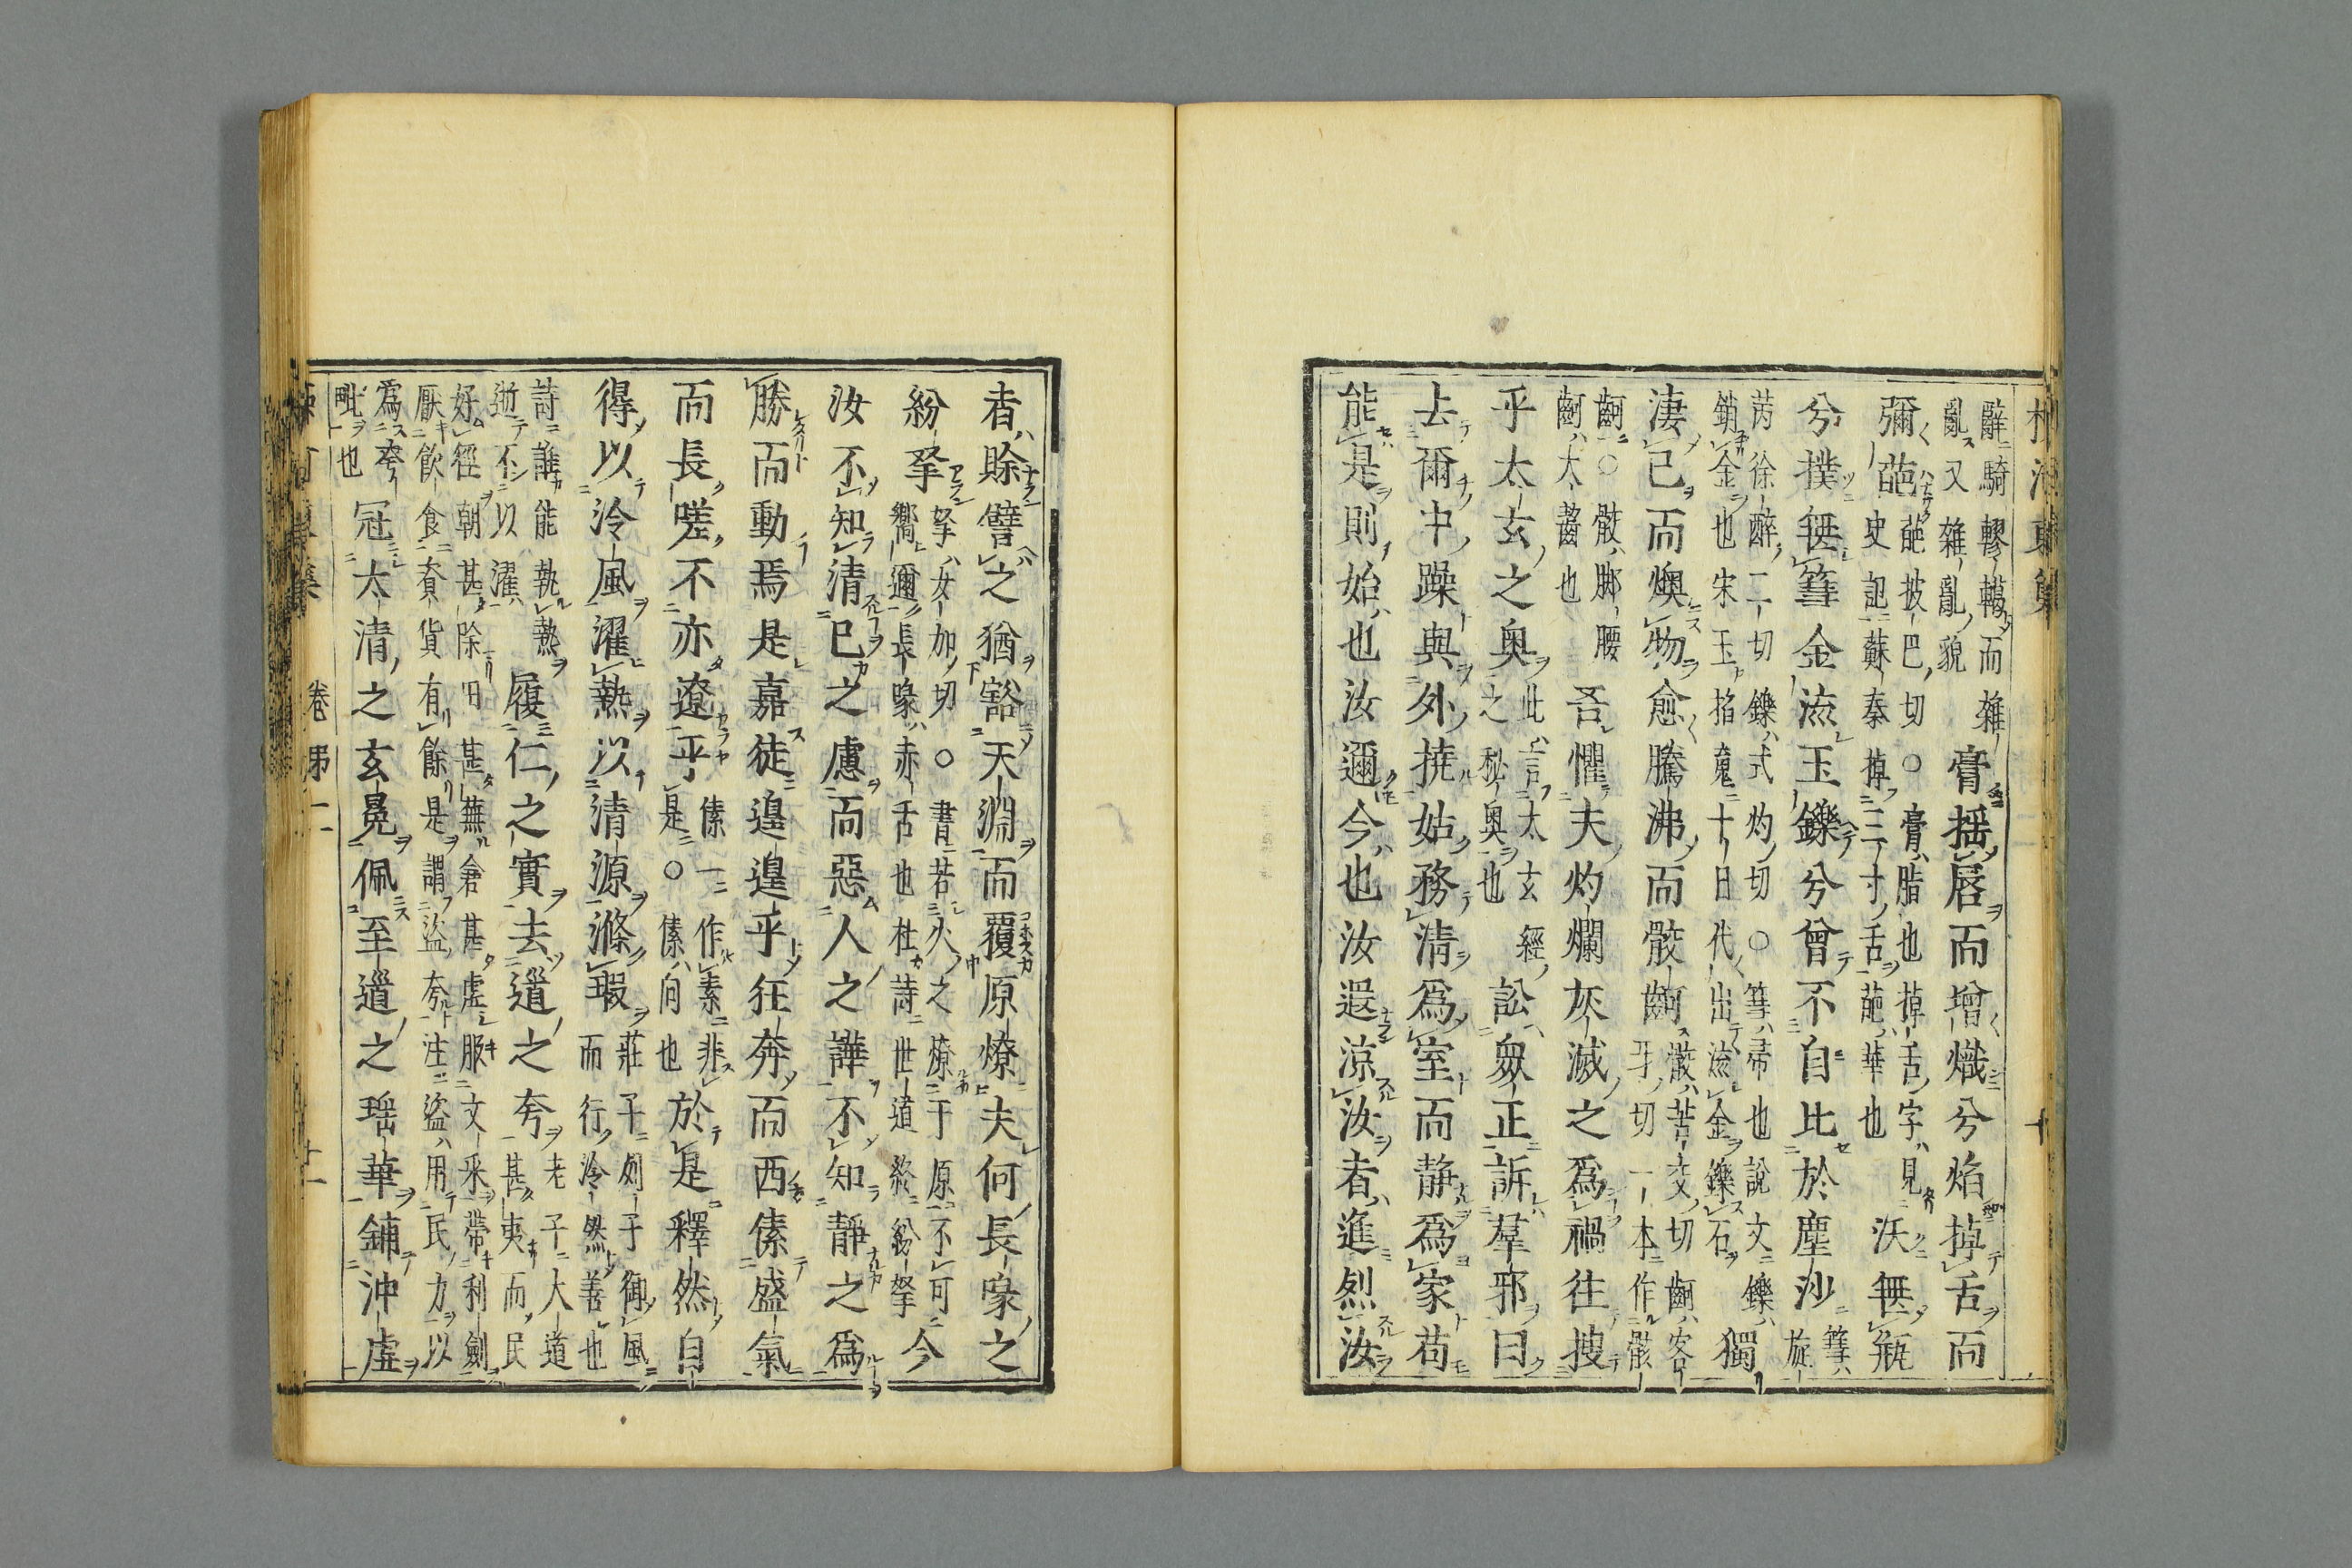 柳河東集 十
辭騎轇轕而雜
亂又雜亂貌
膏揺唇而增熾兮焰掉舌而
彌葩
葩披巴切○膏脂也掉舌字見
史記蘇秦掉三寸舌葩華也
沃無瓶
兮撲無篲金流玉鑠兮曾不自比於塵沙
篲旋
芮徐醉二切鑠式灼切○篲帚也說文鑠
銷金也宋玉招䰟十日代出流金鑠石
獨
淒己而燠物愈騰沸而骹䶗
骹苦交切䶗客
牙切一本作骸
䶗○骹脚腰
䶗大齧也
吾懼夫灼爛灰滅之爲禍往搜
乎太玄之奥
此言太玄經
之秘奥也
訟衆正訴羣邪曰
去爾中躁與外撓姑務清爲室而静爲家苟
能是則始也汝邇今也汝遐涼汝者進烈汝
者賒譬之猶豁天淵而覆原燎夫何長喙之
紛拏
拏女加切○書若火之燎于原不可
嚮邇長喙赤舌也杜詩世道終紛拏
今
汝不知清己之慮而惡人之譁不知靜之爲
勝而動焉是嘉徒遑遑乎狂奔而西傃盛氣
而長嗟不亦遼乎
傃一作素非
是○傃向也
於是釋然自
得以泠風濯熱以清源滌瑕
莊子列子御風
而行泠然善也
詩誰能執熱
逝不以濯
履仁之實去道之夸
老子大道
甚夷而民
好徑朝甚除田甚蕪倉甚虛服文采帶利劍
厭飲食資貨有餘是謂盜夸注盜用民力以
爲夸
毗也
冠太清之玄冕佩至道之瑶華鋪沖虛
卷第一 十一